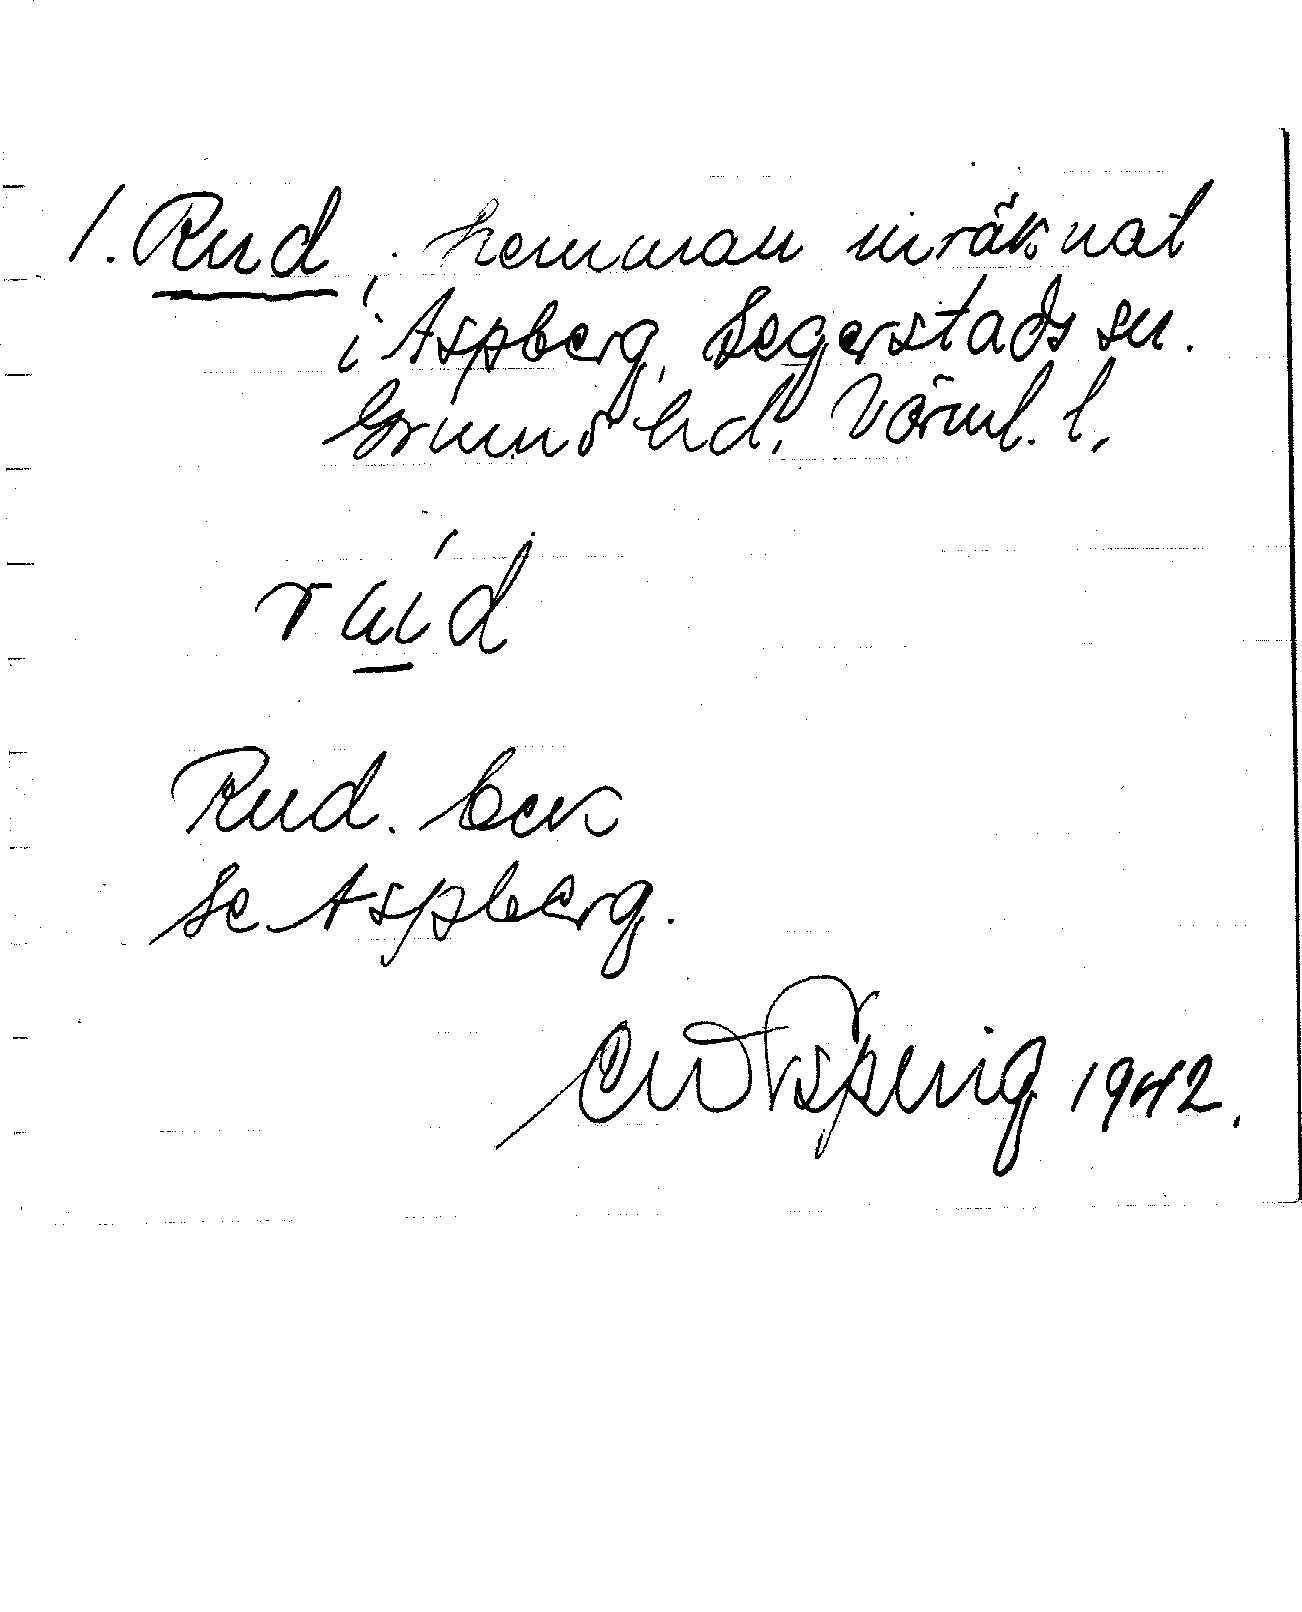 1. Rud, hemman inräknat
i Aspberg, Segerstads sn.
Grums hd, Värml. l.
rúd
Rud. bex
Se Aspberg.
1942.